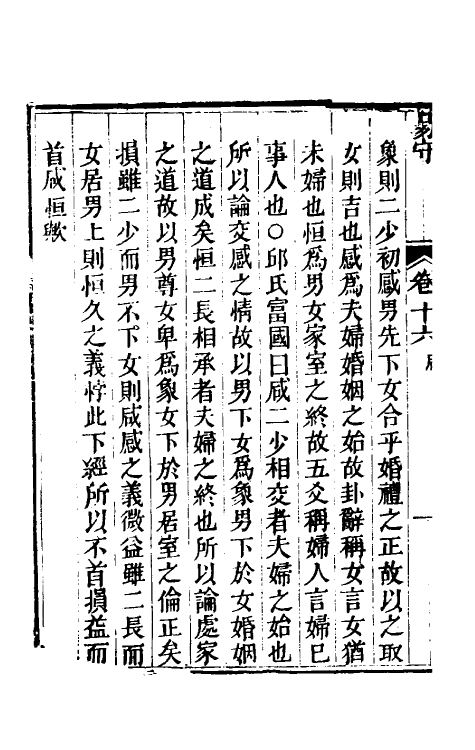 卷十六
象則二少初感男先下女合乎婚禮之正故以之取
女則吉也感爲夫婦婚姻之始故卦辭稱女言女猶
未婦也恒爲男女家室之終故五爻稱婦人言婦已
事人也○邱氏富國曰咸二少相交者夫婦之始也
所以論交感之情故以男下女爲象男下於女婚姻
之道成矣恒二長相承者夫婦之終也所以論處家
之道故以男尊女卑爲象女下於男居室之倫正矣
損雖二少而男不下女則咸感之義微益雖二長而
女居男上則恒久之義悖此下經所以不首損益而
首咸恒歟